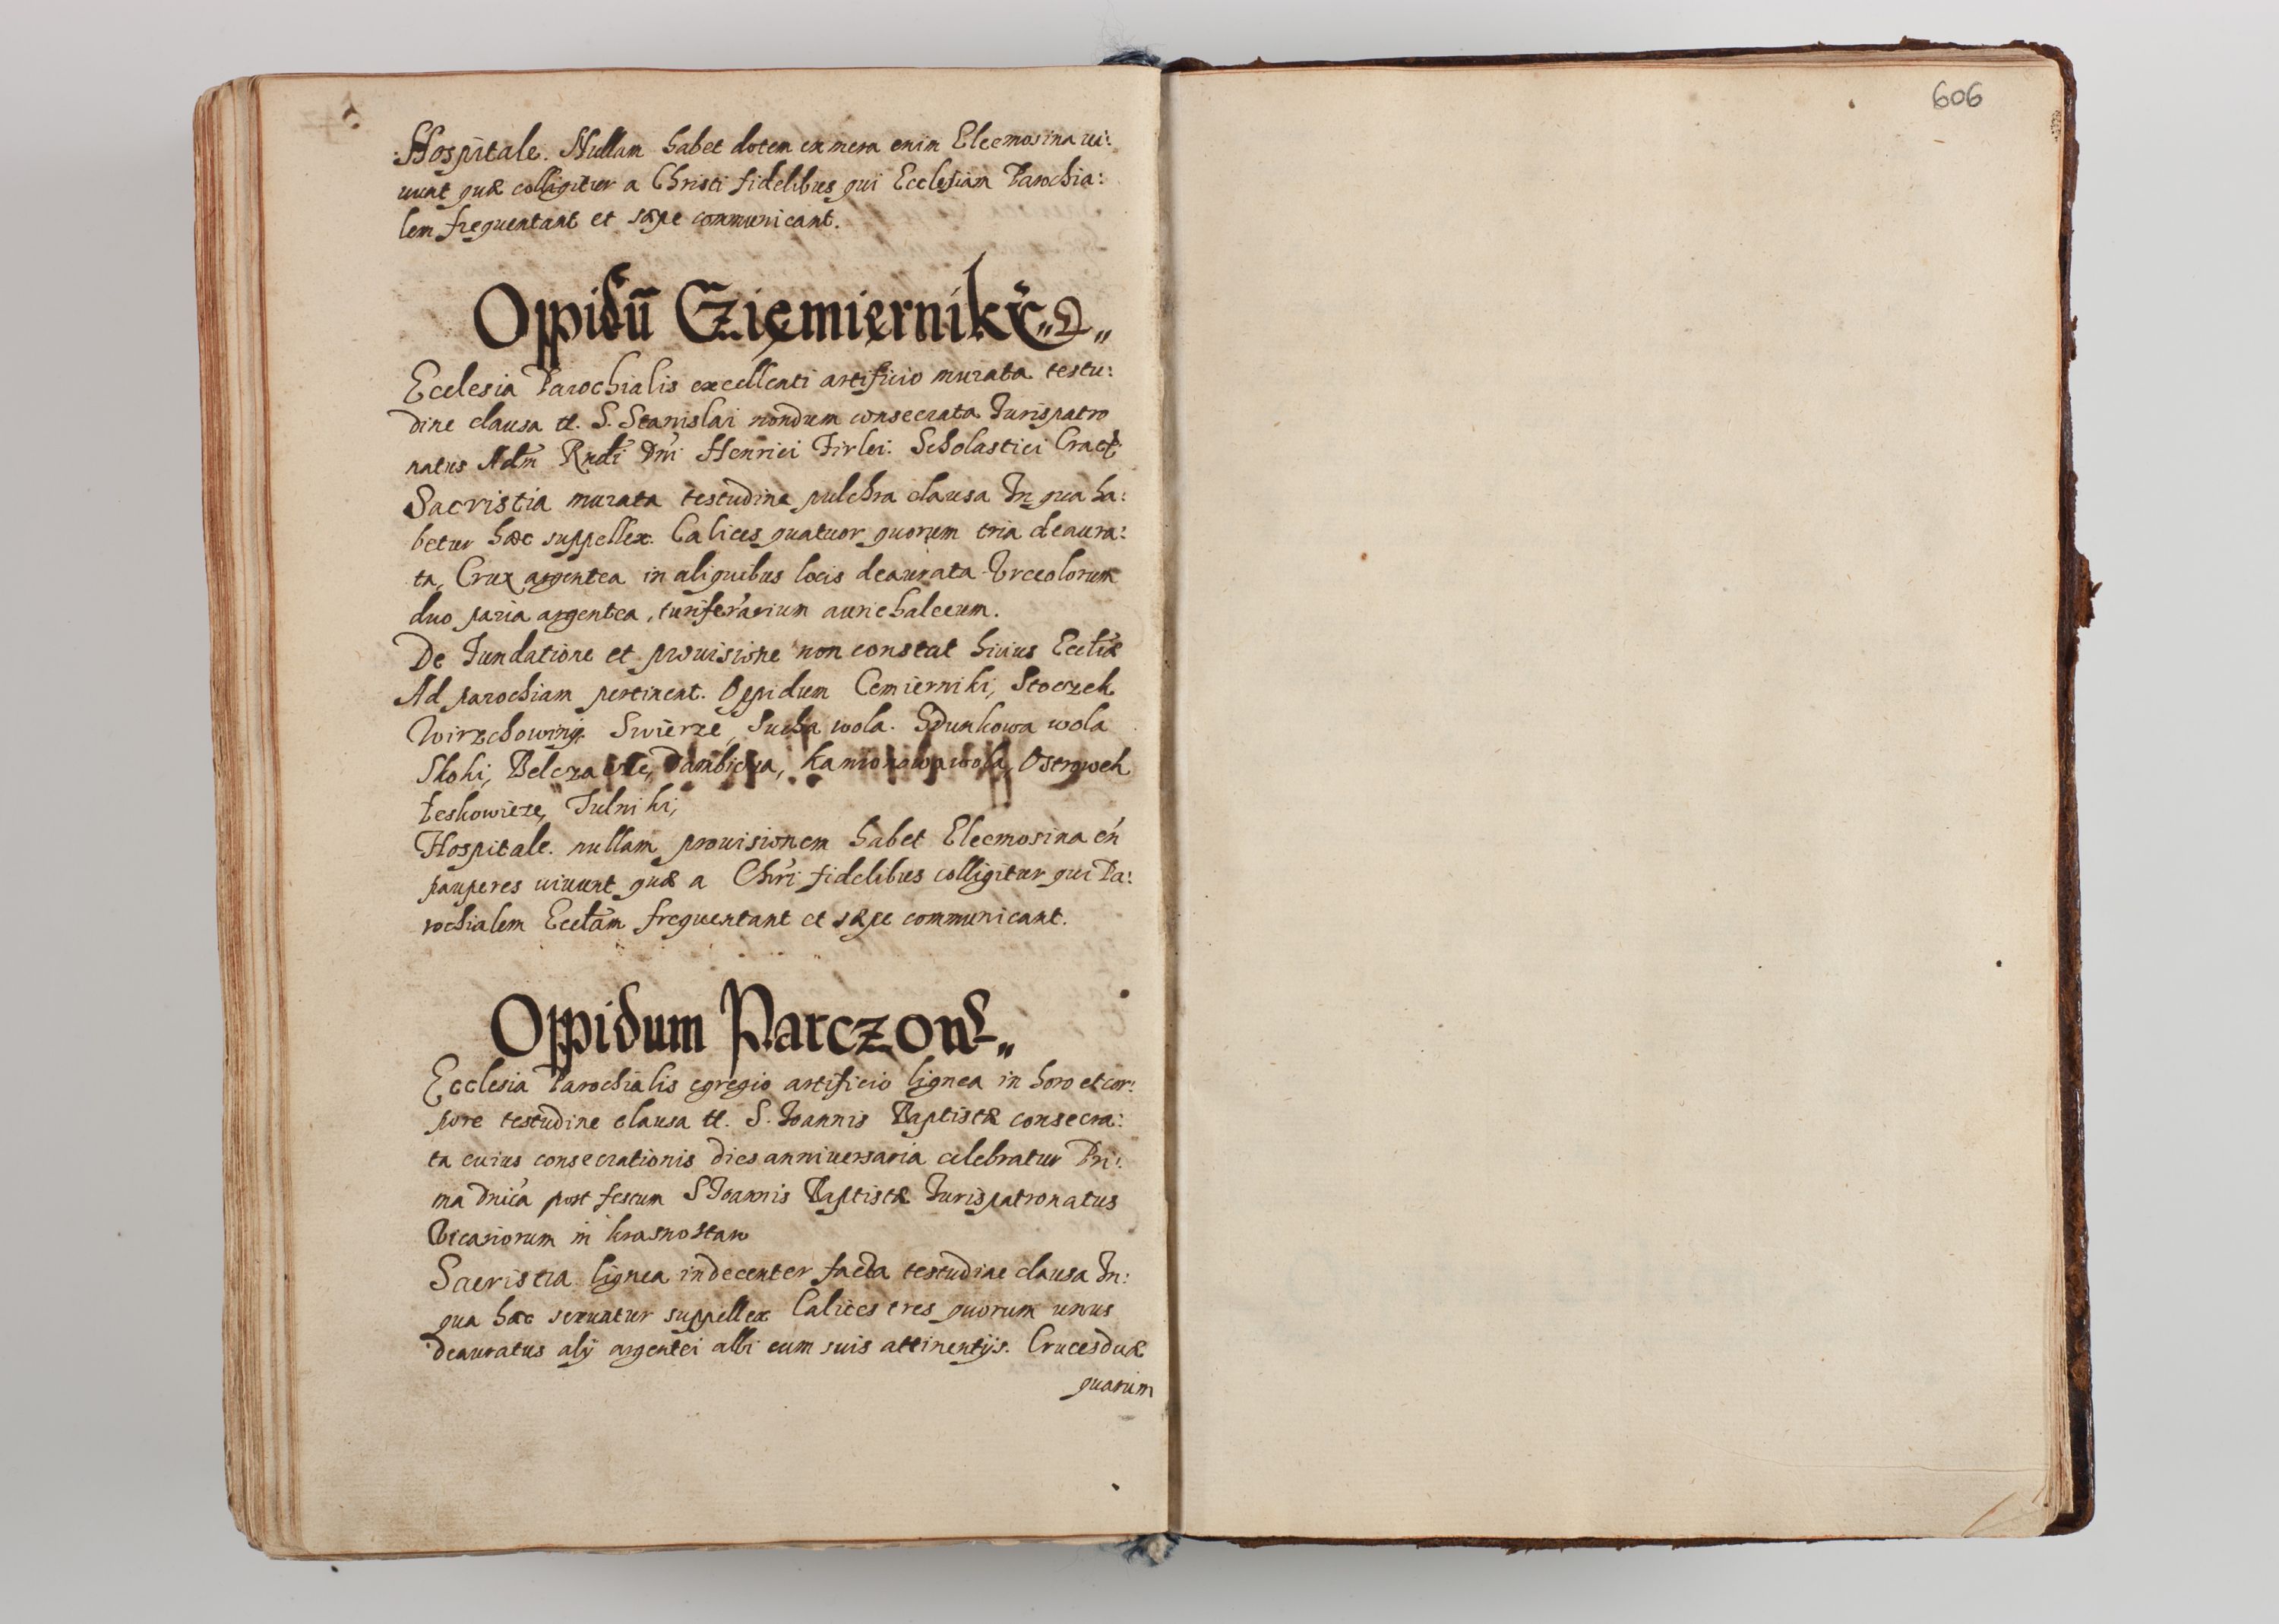 Hospitale. Nullam habet dotem ex mera enim Eleemosina ui:
uunt quæ colligitur a Christi fidelibus qui Ecclesiam Parochia:
lem frequentant et sæpe communicant.
Oppidū Cziemierniki
Ecclesia Parochialis excellenti artificio murata testu:
dine clausa tt. S. Stanislai nondum consecrata Jurispatro
natus Adm Rndi Dni Henrici Firlei. Scholastici
Sacristia murata testudine pulchra clausa In qua ha:
betur hæc suppellex. Calices quatuor quorum tria deaura:
ta, Crux argentea in aliquibus locis deaurata Vrceolorum
duo paria argentea, turiferarium aurichalceum.
De Fundatione et prouisione non constat huius Eccliæ
Ad parochiam pertinent. Oppidum Cemierniki, Stoczek
Swierze, Sucha wola. Sdunkowa wola
Skoki, wola, Ostrowek
Leskowieze, Tulniki,
Hospitale. nullam prouisionem habet Eleemosina en
pauperes uiuunt quæ a Chri fidelibus colligitur qui Pa:
rochialem Ecclam frequentant et sæpe communicant.
Oppidum Parczow
Ecclesia Parochialis egregio artificio lignea in horo et cor:
pore testudine clausa tt. S. Joannis Baptistæ consecra:
ta cuius consecrationis dies anniuersaria celebratur Pri:
ma Dnica post festum S Joannis Baptistæ Jurispatronatus
Vicariorum in krasnostaw
Sacristia lignea indecenter facta testudine clausa In:
qua hæc seruatur suppellex Calices tres quorum unus
deauratus alij argentei albi cum suis attinentijs. Cruces duæ
quarum
606